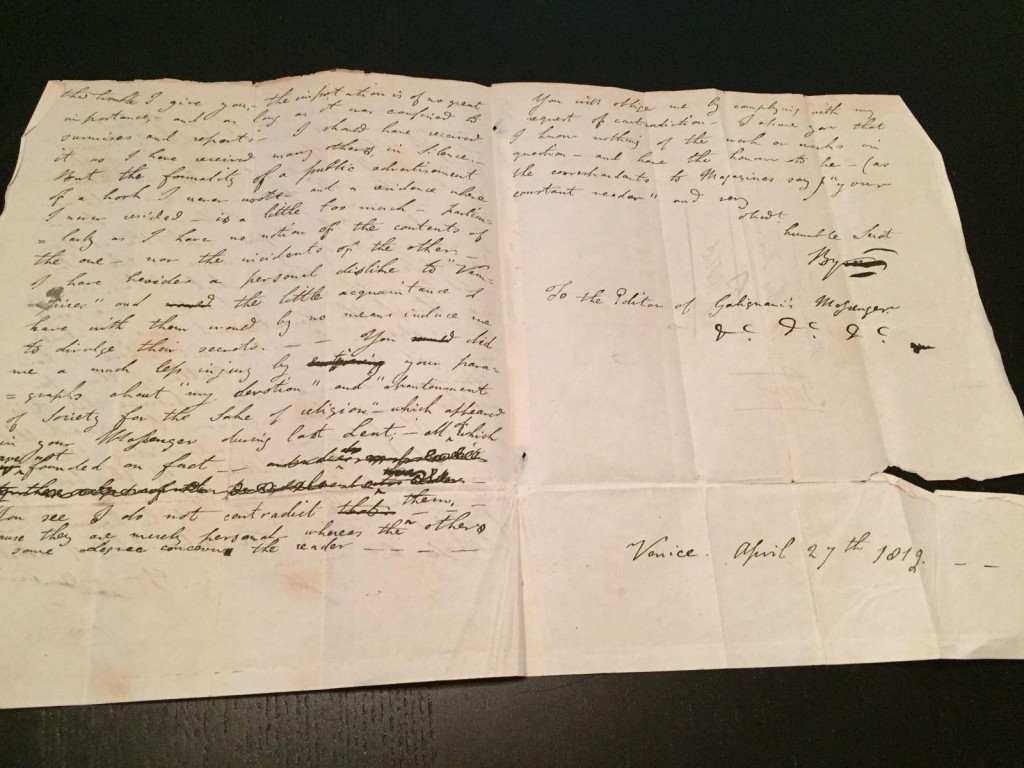 this trouble I give you, – the imputation is of no great
importance – and as long as it was confined to
surmises and reports – I should have received
it as I have received many others, in Silence. –
But the formality of a public advertisement
of a book I never wrote – and a residence where
I never resided – is a little too much – particu-
=larly as I have no notion of the contents of
the one – nor the incidents of the other. –
I have besides a personal dislike to "Vam-
pires" and the little acquaintance I
have with them would by no means induce me
to divulge their secrets. – – You did
me a much less injury by your para=
=graphs about "my devotion" and "abandonment
of Society for the Sake of religion" – which appeared
in your Messenger during last Lent; – all which
are not founded on fact –
You see I do not contradict them, –
they are merely personal, whereas the others
some degree concern the reader – – – –
You will oblige me by complying with my
request of contradiction – I assure you that
I know nothing of the work or works in
question – and have the honour to be – (as
the correspondents to Magazines say) "your
constant reader" and very
obedt
humble Servt
Byron
To the Editor of Galignani's Messenger.
&c. &c. &c.
Venice. April 27th 1819. – –